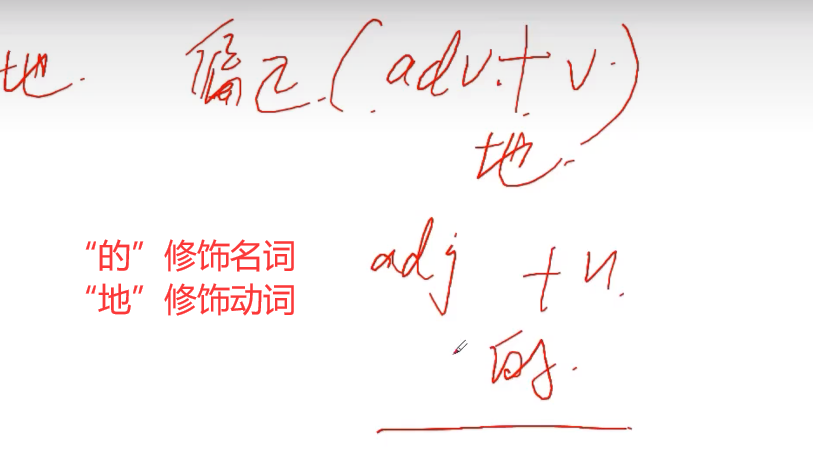 地. 偏正.(adv.+v.)
地.
“的”修饰名词
“地”修饰动词
adj +n.
的.